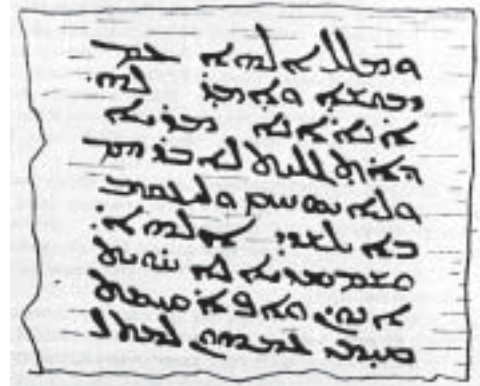 ܘܡܠܠ ܐܠܗܐ ܥܡ
ܡܘܫܐ ܘܐܡܪ ܠܗ.
ܐܢܐ ܐܢܐ ܡܪܝܐ
ܘܐܬܓܠܝܬ ܠܐܒܪܗܡ
ܘܠܐܝܣܚܩ ܘܠܝܥܩܘܒ
ܒܐܠܫܕܝ ܐܠܗܐ.
ܘܫܡ ܡܪܝܐ ܠܐ ܚܘܝܬ
ܐܢܘܢ ܘܐܦ ܐܩܝܡܬ
ܩܝܡܝ ܥܡܗܘܢ ܠܡܬܠ